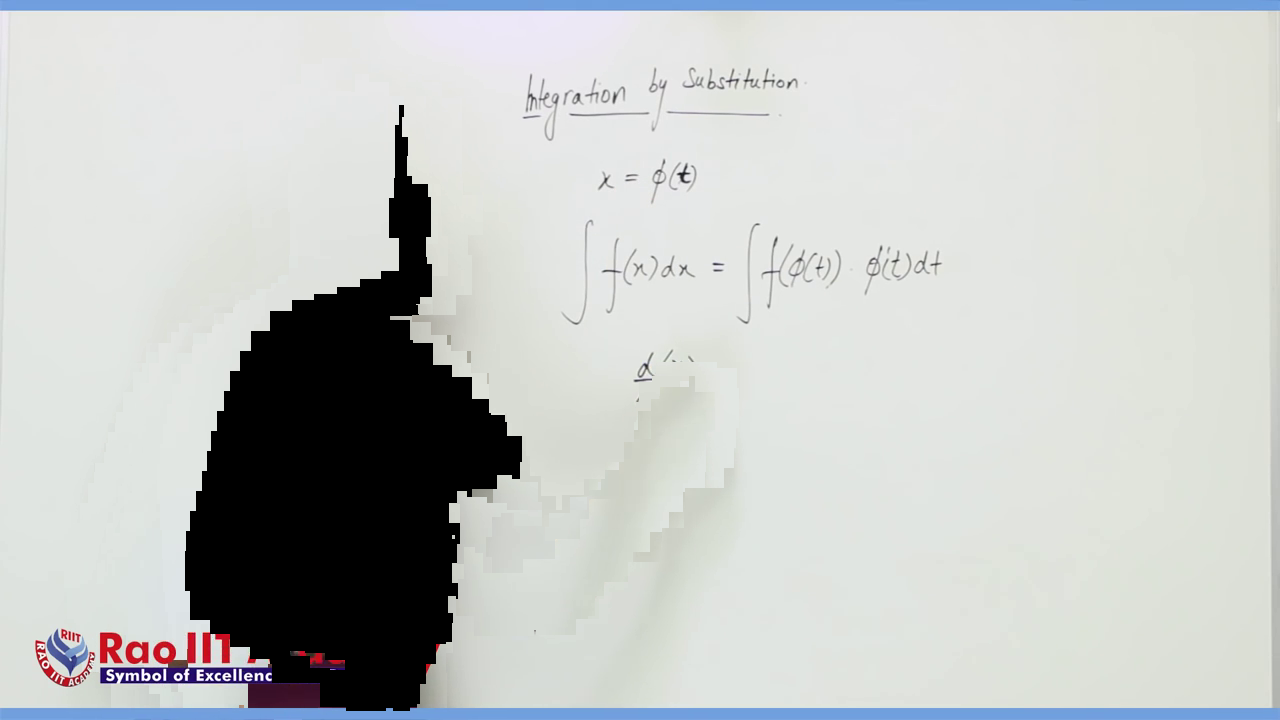 Integration by Substitution.
x = ϕ(t)
∫ f(x) dx = ∫ f(ϕ(t)) · ϕ'(t) dt
d
RIIT
RAO IIT ACADEMY
Rao IIT
Symbol of Excellenc